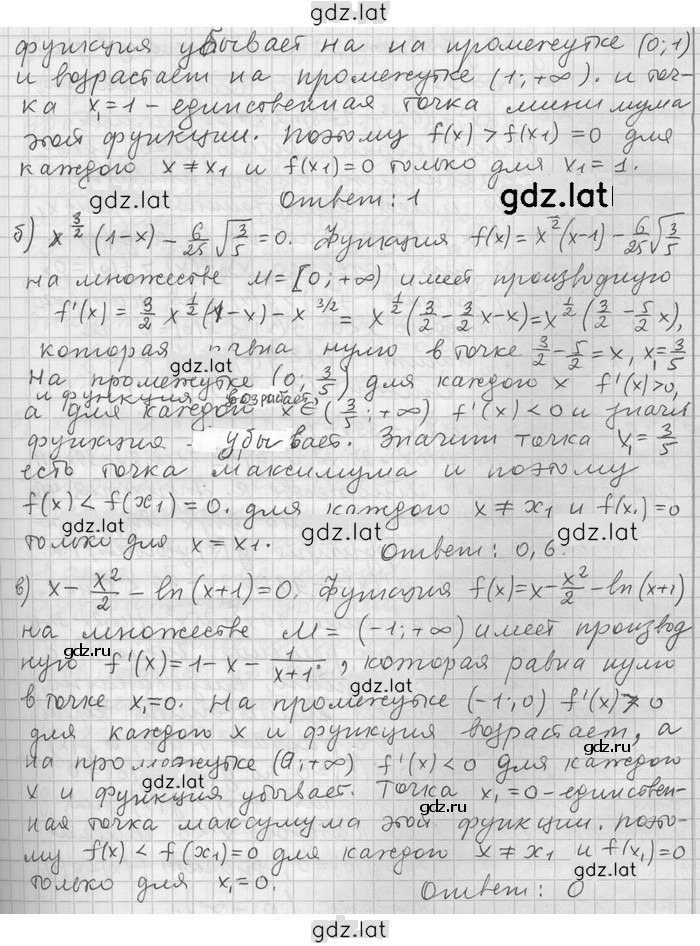 gdz.lat
функция убывает на на промежутке (0; 1)
и возрастает на промежутке (1; +∞). и точ-
ка x₁=1 - единственная точка минимума
этой функции. Поэтому f(x) > f(x₁) = 0 для
каждого x ≠ x₁ и f(x₁)=0 только для x₁ = 1.
gdz.lat Ответ: 1 gdz.lat
б) x^(3/2) (1-x) - 6/25 √(3/5) = 0. Функция f(x) = x^(1/2) (x-1) - 6/25 √(3/5)
на множестве M = [0; +∞) имеет производную
f'(x) = 3/2 x^(1/2) (1-x) - x^(3/2) = x^(1/2) (3/2 - 3/2 x - x) = x^(1/2) (3/2 - 5/2 x),
которая равна нулю в точке 3/2 - 5/2 = x, x₁ = 3/5
gdz.lat
На промежутке (0; 3/5) для каждого x f'(x)>0,
и функция возрастает,
а для каждого x ∈ (3/5; +∞) f'(x) < 0 и значит
функция - убывает. Значит точка x₁ = 3/5
есть точка максимума и поэтому
f(x) < f(x₁) = 0. для каждого x ≠ x₁ и f(x₁) = 0
gdz.lat gdz.lat gdz.lat
только для x = x₁. Ответ: 0,6.
в) x - x²/2 - ln (x+1) = 0. Функция f(x) = x - x²/2 - ln(x+1)
на множестве M = (-1; +∞) имеет производ
gdz.lat
ную f'(x) = 1 - x - 1/(x+1), которая равна нулю
gdz.lat
в точке x₁=0. На промежутке (-1; 0) f'(x) > 0
для каждого x и функция возрастает, а
gdz.ru
на промежутке (0; +∞) f'(x) < 0 для каждого
gdz.lat
x и функция убывает. Точка x₁ = 0 - единствен-
gdz.ru
ная точка максумума этой функции. Поэто-
му f(x) < f(x₁) = 0 для каждого x ≠ x₁ и f(x₁) = 0
gdz.lat gdz.ru
только для x₁ = 0. Ответ: 0
gdz.lat